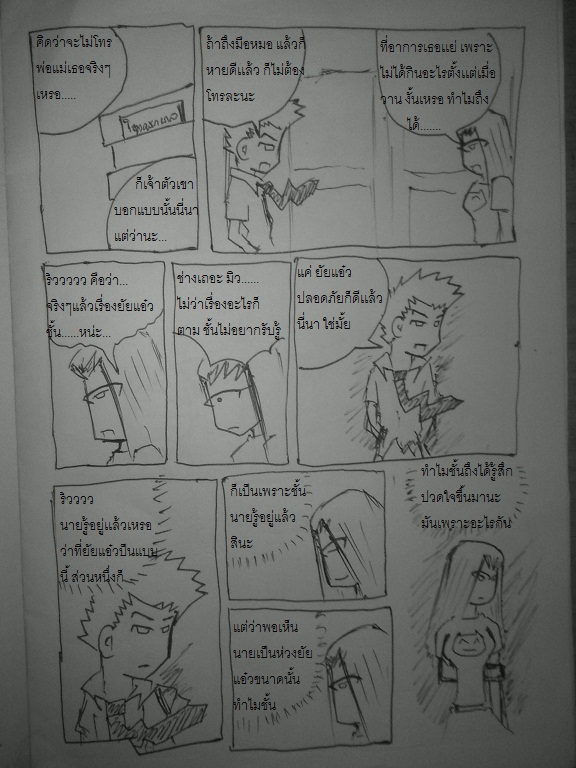 คิดว่าจะไม่โทร
พ่อแม่เธอจริงๆ
เหรอ.....
ก็เจ้าตัวเขา
บอกแบบนั้นนี่นา
แต่ว่านะ...
ถ้าถึงมือหมอ แล้วก็
หายดีแล้ว ก็ไม่ต้อง
โทรละนะ
ที่อาการเธอแย่ เพราะ
ไม่ได้กินอะไรตั้งแต่เมื่อ
วาน งั้นเหรอ ทำไมถึง
ได้.......
ริววววว คือว่า...
จริงๆแล้วเรื่องยัยแอ๋ว
ชั้น......หน่ะ...
ช่างเถอะ มิว......
ไม่ว่าเรื่องอะไรก็
ตาม ชั้นไม่อยากรับรู้
แค่ ยัยแอ๋ว
ปลอดภัยก็ดีแล้ว
นี่นา ใช่มั้ย
ริวววว
นายรู้อยู่แล้วเหรอ
ว่าที่ยัยแอ๋วป็นแบบ
นี้ ส่วนหนึ่งก็
ก็เป็นเพราะชั้น
นายรู้อยู่แล้ว
สินะ
แต่ว่าพอเห็น
นายเป็นห่วงยัย
แอ๋วขนาดนั้น
ทำไมชั้น
ทำไมชั้นถึงได้รู้สึก
ปวดใจขึ้นมานะ
มันเพราะอะไรกัน